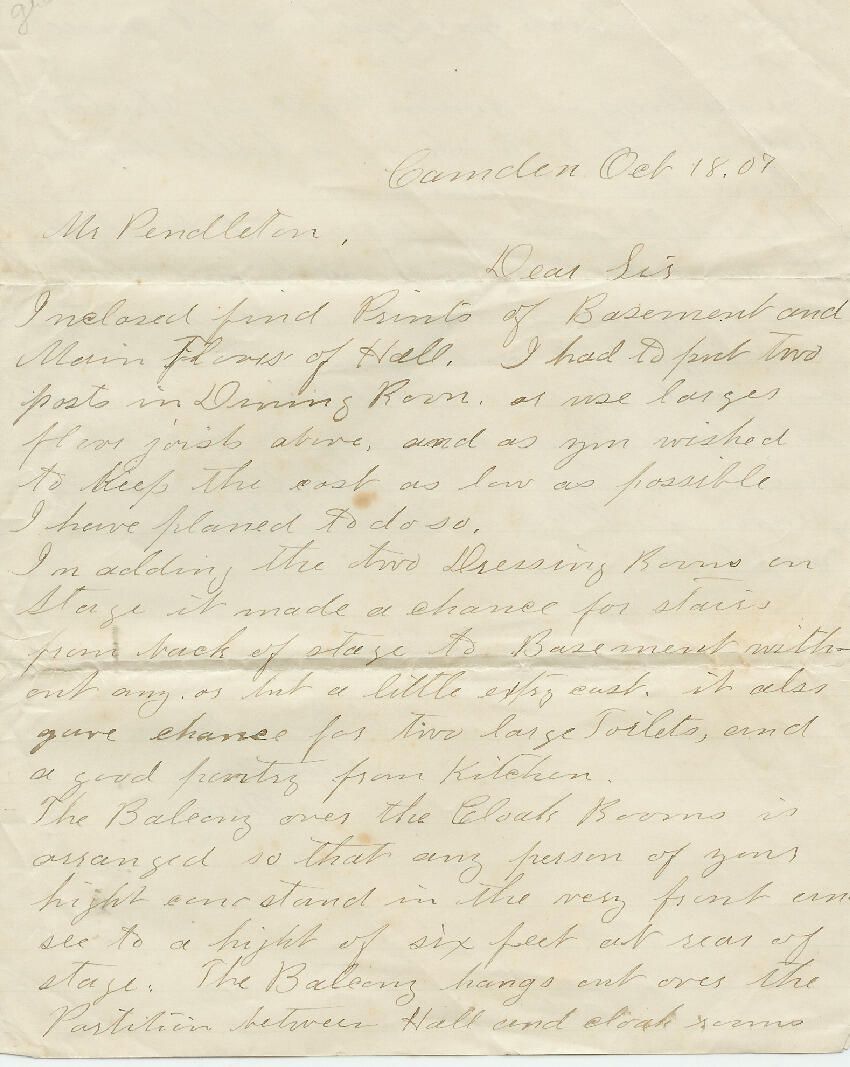 Camden Oct 18. 07
Mr Pendleton,
Dear Sir
Inclosed find Prints of Basement and
Main Floors of Hall. I had to put two
posts in Dining Room. or use larger
floor joists above, and as you wished
to keep the cost as low as possible
I have planed to do so.
In adding the two Dressing Rooms on
Stage it made a chance for stairs
from back of stage to Basement with-
out any. or but a little extry cost. it also
gave chance for two large Toilets, and
a good pantry from Kitchen.
The Balcony over the Cloak Rooms is
arranged so that any person of your
hight can stand in the very front an
see to a hight of six feet at rear of
stage. The Balcony hangs out over the
Partition between Hall and cloak rooms